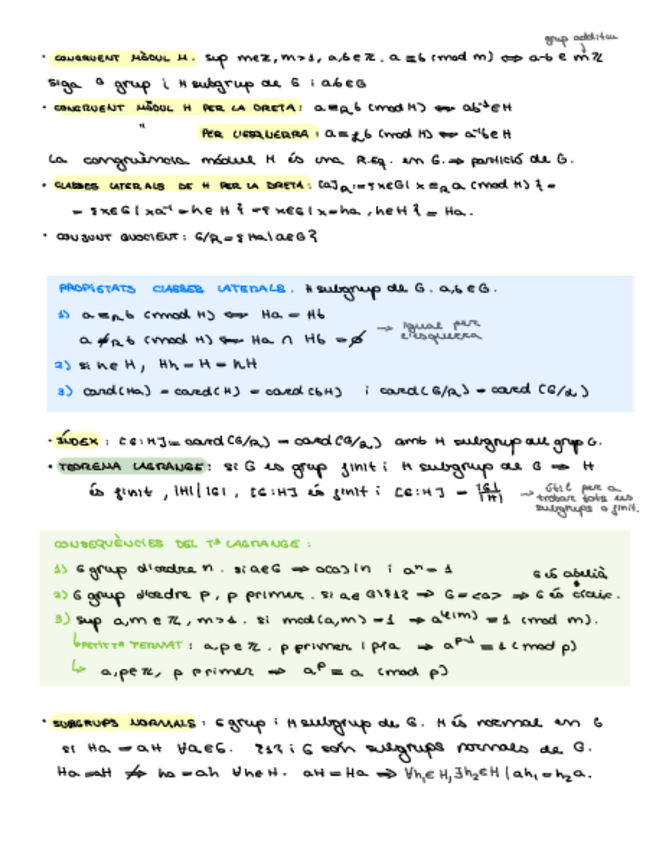 grup additiu
• CONGRUENT MÒDUL M. sup m∈ℤ, m>1, a,b∈ℤ. a≡b (mod m) ⇔ a-b ∈ mℤ
siga G grup i H subgrup de G i a,b∈G
• CONGRUENT MÒDUL H PER LA DRETA: a≡_R b (mod H) ⇔ ab⁻¹∈H
" PER L'ESQUERRA: a≡_L b (mod H) ⇔ a⁻¹b∈H
La congruència mòdul H és una R.Eq. en G. ⇒ partició de G.
• CLASSES LATERALS DE H PER LA DRETA: [a]_R := {x∈G | x≡_R a (mod H)} =
= {x∈G | xa⁻¹=h∈H} = {x∈G | x=ha, h∈H} = Ha.
• CONJUNT QUOCIENT: G/R = {Ha | a∈G}
PROPIETATS CLASSES LATERALS. H subgrup de G. a,b∈G.
1) a≡_R b (mod H) ⇔ Ha = Hb
a≢_R b (mod H) ⇔ Ha ∩ Hb = ∅ → igual per
l'esquerra
2) si h∈H, Hh = H = hH
3) card(Ha) = card(H) = card(bH) i card(G/R) = card(G/L)
• ÍNDEX: [G:H] = card(G/R) = card(G/L) amb H subgrup del grup G.
• TEOREMA LAGRANGE: si G és grup finit i H subgrup de G ⇒ H
és finit, |H| | |G|, [G:H] és finit i [G:H] = |G|/|H| → útil per a
trobar tots els
subgrups d'finit.
CONSEQÜÈNCIES DEL Tª LAGRANGE:
1) G grup d'ordre n. si a∈G ⇒ o(a)|n i aⁿ = 1
G és abelià
2) G grup d'ordre p, p primer. si a∈G\{1} ⇒ G=<a> ⇒ G és cíclic.
3) sup a,m∈ℤ, m>1. si mcd(a,m)=1 ⇒ a^φ(m) ≡ 1 (mod m).
↳ PETIT Tª FERMAT: a,p∈ℤ. p primer i p∤a ⇒ a^(p-1) ≡ 1 (mod p)
↳ a,p∈ℤ, p primer ⇒ a^p ≡ a (mod p)
• SUBGRUPS NORMALS: G grup i H subgrup de G. H és normal en G
si Ha = aH ∀a∈G. {1} i G són subgrups normals de G.
Ha=aH ⇏ ha=ah ∀h∈H. aH=Ha ⇒ ∀h₁∈H, ∃h₂∈H | ah₁=h₂a.